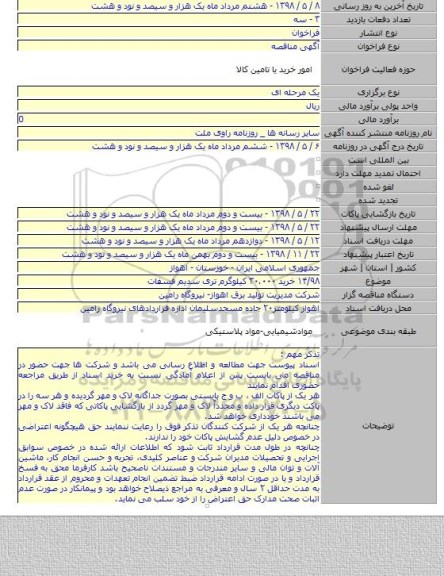 تاریخ آخرین به روز رسانی	۸ / ۵ / ۱۳۹۸ - هشتم مرداد ماه یک هزار و سیصد و نود و هشت
تعداد دفعات بازدید	۳ - سه
نوع انتشار	فراخوان
نوع فراخوان	آگهی مناقصه
حوزه فعالیت فراخوان	امور خرید یا تامین کالا
نوع برگزاری	یک مرحله ای
واحد پولی برآورد مالی	ریال
برآورد مالی	0
نام روزنامه منتشر کننده آگهی	سایر رسانه ها _ روزنامه راوی ملت
تاریخ درج آگهی در روزنامه	۶ / ۵ / ۱۳۹۸ - ششم مرداد ماه یک هزار و سیصد و نود و هشت
بین المللی است
احتمال تمدید مهلت دارد
لغو شده
تجدید شده
تاریخ بازگشایی پاکات	۲۲ / ۵ / ۱۳۹۸ - بیست و دوم مرداد ماه یک هزار و سیصد و نود و هشت
مهلت ارسال پیشنهاد	۲۲ / ۵ / ۱۳۹۸ - بیست و دوم مرداد ماه یک هزار و سیصد و نود و هشت
مهلت دریافت اسناد	۱۲ / ۵ / ۱۳۹۸ - دوازدهم مرداد ماه یک هزار و سیصد و نود و هشت
تاریخ اعتبار پیشنهاد	۲۲ / ۱۱ / ۱۳۹۸ - بیست و دوم بهمن ماه یک هزار و سیصد و نود و هشت
کشور | استان | شهر	جمهوری اسلامی ایران - خوزستان - اهواز
موضوع	۱۴/۹۸ خرید ۲۰,۰۰۰ کیلوگرم تری سدیم فسفات
دستگاه مناقصه گزار	شرکت مدیریت تولید برق اهواز- نیروگاه رامین
محل دریافت اسناد	اهواز کیلومتر۲۰ جاده مسجدسلیمان اداره قراردادهای نیروگاه رامین
طبقه بندی موضوعی	موادشیمیایی-مواد پلاستیکی
توضیحات
تذکر مهم :
اسناد پیوست جهت مطالعه و اطلاع رسانی می باشد و شرکت ها جهت حضور در
مناقصه می بایست پس از اعلام آمادگی نسبت به خرید اسناد از طریق مراجعه
حضوری اقدام نمایند
هر یک از پاکات الف ، ب و ج بایستی بصورت جداگانه لاک و مهر گردیده و هر سه را در
پاکت دیگری قرار داده و مجدداً لاک و مهر گردد از بازگشایی پاکاتی که فاقد لاک و مهر
می باشند خودداری خواهد شد.
چنانچه هر یک از شرکت کنندگان تذکر فوق را رعایت ننمایند حق هیچگونه اعتراضی
در خصوص دلیل عدم گشایش پاکات خود را ندارند.
چنانچه در طول مدت قرارداد ثابت شود که اطلاعات ارائه شده در خصوص سوابق
اجرایی و تحصیلات مدیران شرکت و عناصر کلیدی، تجربه و حسن انجام کار، ماشین
آلات و توان مالی و سایر مندرجات و مستندات ناصحیح باشد کارفرما محق به فسخ
قرارداد و یا در صورت ادامه قرارداد ضبط تضمین انجام تعهدات و محروم از عقد قرارداد
به مدت حداقل ۲ سال و معرفی به مراجع ذیصلاح خواهد بود و پیمانکار در صورت عدم
اثبات صحت مدارک حق اعتراض را از خود سلب می نماید.